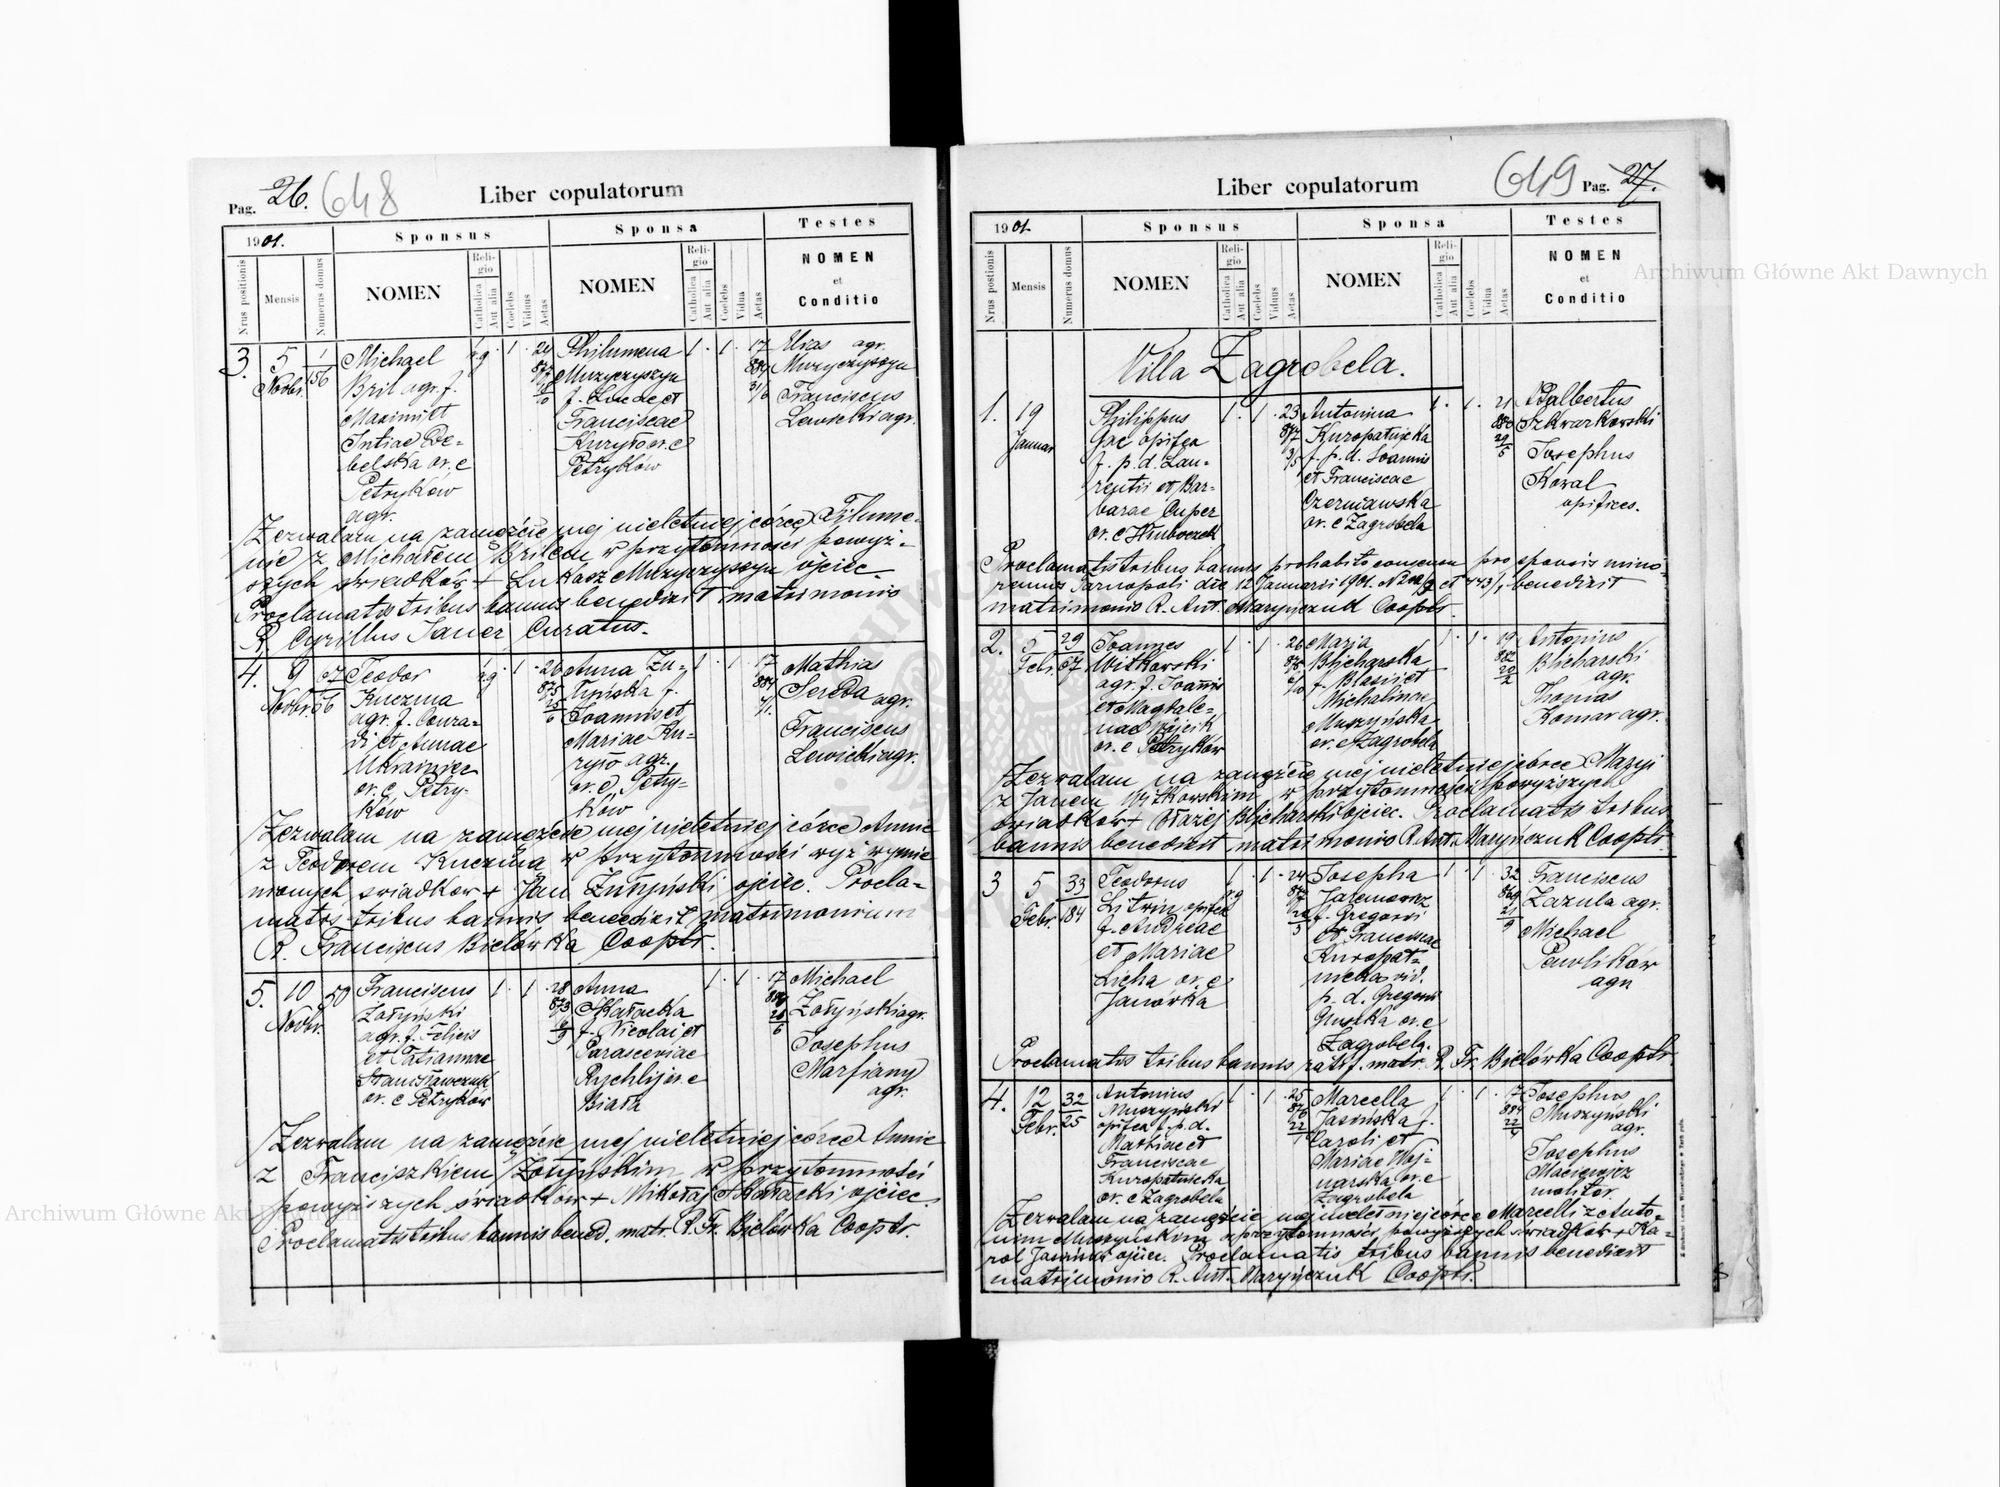 Pag. 26. 648
Liber copulatorum
1901.
Sponsus
Sponsa
Testes
Nrus positionis
Mensis
Numerus domus
NOMEN
Religio
Catholica
Aut alia
Coelebs
Viduus
Aetas
NOMEN
Religio
Catholica
Aut alia
Coelebs
Vidua
Aetas
NOMEN
et
Conditio
3.
5
Novbr.
1
156
Michael
Bril agr. f.
Maximi et
belska or. e
Petryków
agr.
24
Philumena
Muzyczyszyn
f. Lucae et
Franciscae
Kuryło or. e
Petryków
17
884
Elias agr.
Muzyczyszyn
Franciscus
Lewicki agr.
Zezwalam na zamęście mej nieletniej córce Filume-
nie z Michałem Brilem w przytomności powyż-
szych świadków + Łukasz Muzyczyszyn ojciec.
Proclamatis tribus bannis benedixit matrimonio
R. Cyrillus Janer Curatus.
4.
9
Novbr.
Teodor
Kuczma
agr. f. Conra-
di et Annae
Ukrainiec
or. e Petry-
ków
26
875
Anna Żu-
łyńska f.
Joannis et
Mariae Ku-
ryło agr.
or. e Petry-
ków
17
884
Mathias
Sereda agr.
Franciscus
Lewicki agr.
Zezwalam na zamęście mej nieletniej córce Annie
z Teodorem Kuczmą w przytomności wyż wymie
nionych świadków + Jan Żułyński ojciec. Procla-
matis tribus bannis benedixit matrimonium
R. Franciscus Bielówka Cooptr.
5.
10
Novbr.
50
Franciscus
Żołyński
agr. f. Felicis
et Tatiannae
or. e Petryków
28
873
Anna
Skałacka
f. Nicolai et
Parasceviae
Rychlij or. e
Biała
17
Michael
Żołyński agr.
Josephus
Marfiany
agr.
Zezwalam na zamęście mej nieletniej córce Annie
z Franciszkiem Żołyńskim w przytomności
powyższych świadków + Mikołaj Skałacki ojciec.
Proclamatis tribus bannis bened. matr. R. Fr. Bielówka Cooptr.
Liber copulatorum
649 Pag. 27.
1901
Sponsus
Sponsa
Testes
Nrus positionis
Mensis
Numerus domus
NOMEN
Religio
Catholica
Aut alia
Coelebs
Viduus
Aetas
NOMEN
Religio
Catholica
Aut alia
Coelebs
Vidua
Aetas
NOMEN
et
Conditio
Villa Zagrobela.
1.
19
Januar
Philippus
Gac opifex
f. p. d. Lau-
rentii et Bar-
barae Cuper
or. e Hluboczek
23
877
Antonina
Kuropatnicka
f. p. d. Joannis
et Franciscae
Czerniawska
or. e Zagrobela
21
880
Adalbertus
Szkwarkowski
Josephus
Kowal
opifices.
Proclamatis tribus bannis prohabito consensu pro sponsis mino-
rennis Tarnopoli die 12 Januarii 1901. benedixit
matrimonio R. Ant. Maryńczuk Cooptr.
2.
5
Febr.
29
67
Joannes
Witkowski
agr. f. Joannis
et Magdale-
nae Wójcik
or. e Petryków
26
Maria
Blicharska
f. Blasii et
Michalinae
Muszyńska
or. e Zagrobela
19
882
Antonius
Blicharski
agr.
Thomas
Komar agr.
Zezwalam na zamęście mej nieletniej córce Maryi
z Janem Witkowskim w przytomności powyższych
świadków + Błażej Blicharski ojciec. Proclamatis tribus
bannis benedixit matrimonio R. Ant. Maryńczuk Cooptr.
3
5
Febr.
33
184
Teodorus
Litwin opifex
f. Andreae
et Mariae
Licha or. e
Janówka
24
Josepha
Jaremowicz
f. Gregorii
et Franciscae
Kuropat-
nicka vid.
p. d. Gregorii
Gruszka or. e
Zagrobela.
32
869
Franciscus
Zazula agr.
Michael
Pawlików
agr.
Proclamatis tribus bannis ratif. matr. R. Fr. Bielówka Cooptr.
4.
12
Febr.
32
25
Antonius
Muszyński
opifex f. p. d.
Mathiae et
Franciscae
Kuropatnicka
or. e Zagrobela
25
Marcella
Jasińska f.
Caroli et
Mariae Woj-
narska or. e
Zagrobela
17
884
Josephus
Muszyński
agr.
Josephus
Maciewicz
molitor.
Zezwalam na zamęście mej nieletniej córce Marcelli z Anto-
nim Muszyńskim w przytomności powyższych świadków + Ka-
rol Jasiński ojciec. Proclamatis tribus bannis benedixit
matrimonio R. Ant. Maryńczuk Cooptr.
Archiwum Główne Akt Dawnych
Archiwum Główne Akt Dawnych